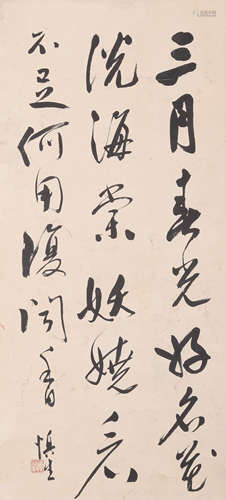 三月春光好名花
洗海棠妖娆看
不足何用复闻香
慎生